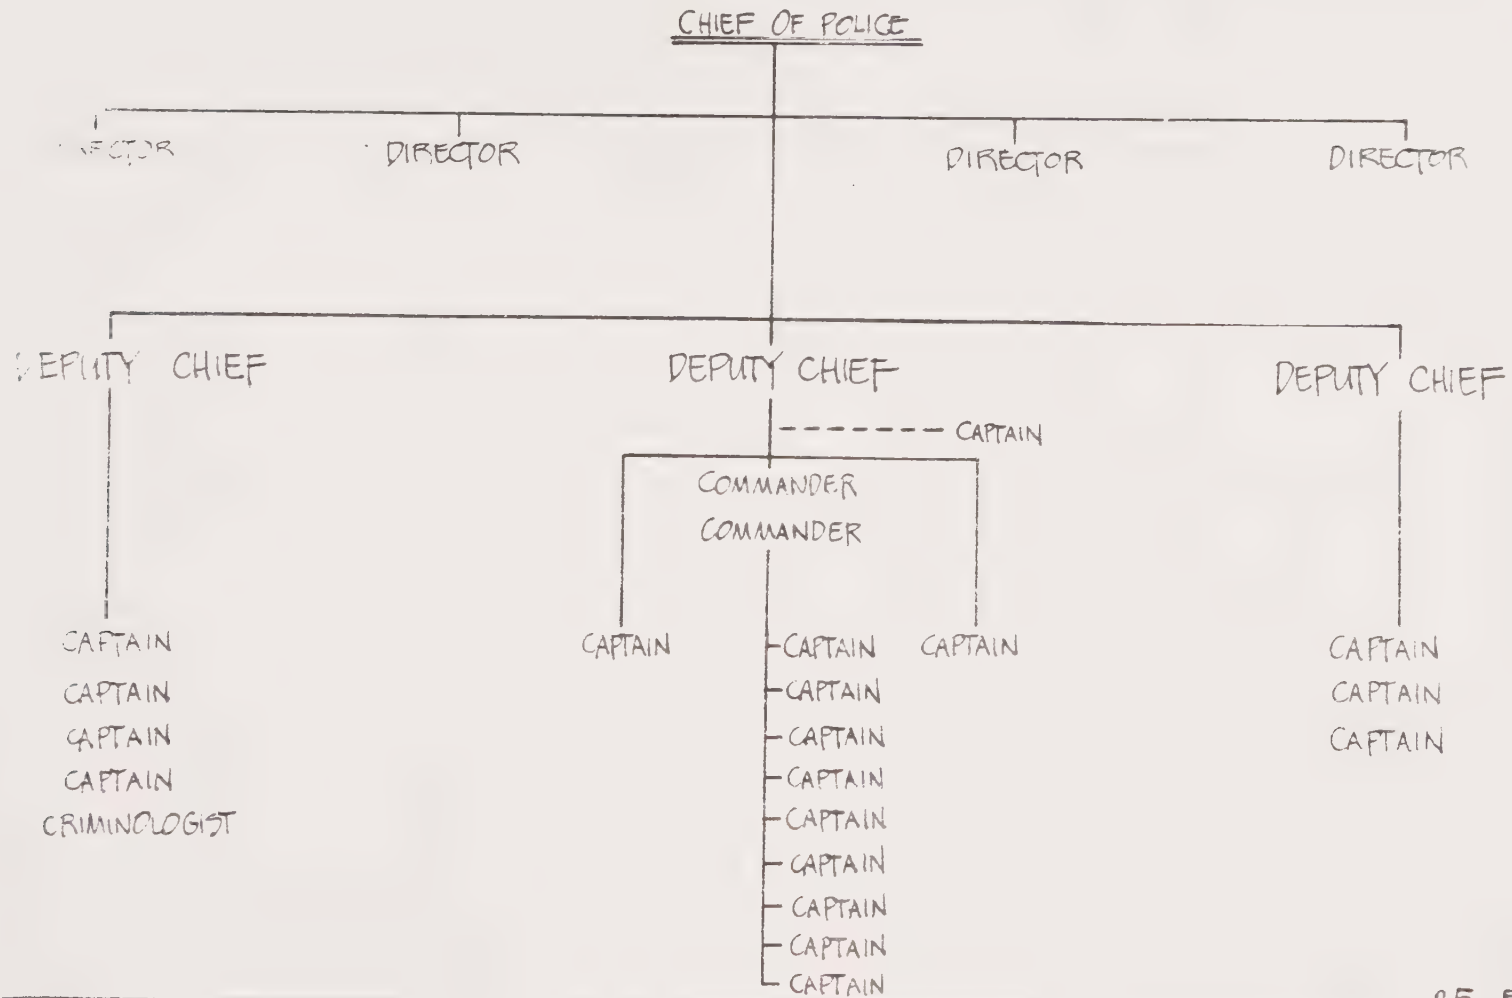 CHIEF OF POLICE
DIRECTOR DIRECTOR DIRECTOR
DEPUTY CHIEF DEPUTY CHIEF DEPUTY CHIEF
CAPTAIN
COMMANDER
COMMANDER
CAPTAIN CAPTAIN CAPTAIN CAPTAIN CAPTAIN
CAPTAIN CAPTAIN CAPTAIN
CAPTAIN CAPTAIN CAPTAIN
CAPTAIN CAPTAIN
CRIMINOLOGIST CAPTAIN
CAPTAIN
CAPTAIN
CAPTAIN
CAPTAIN